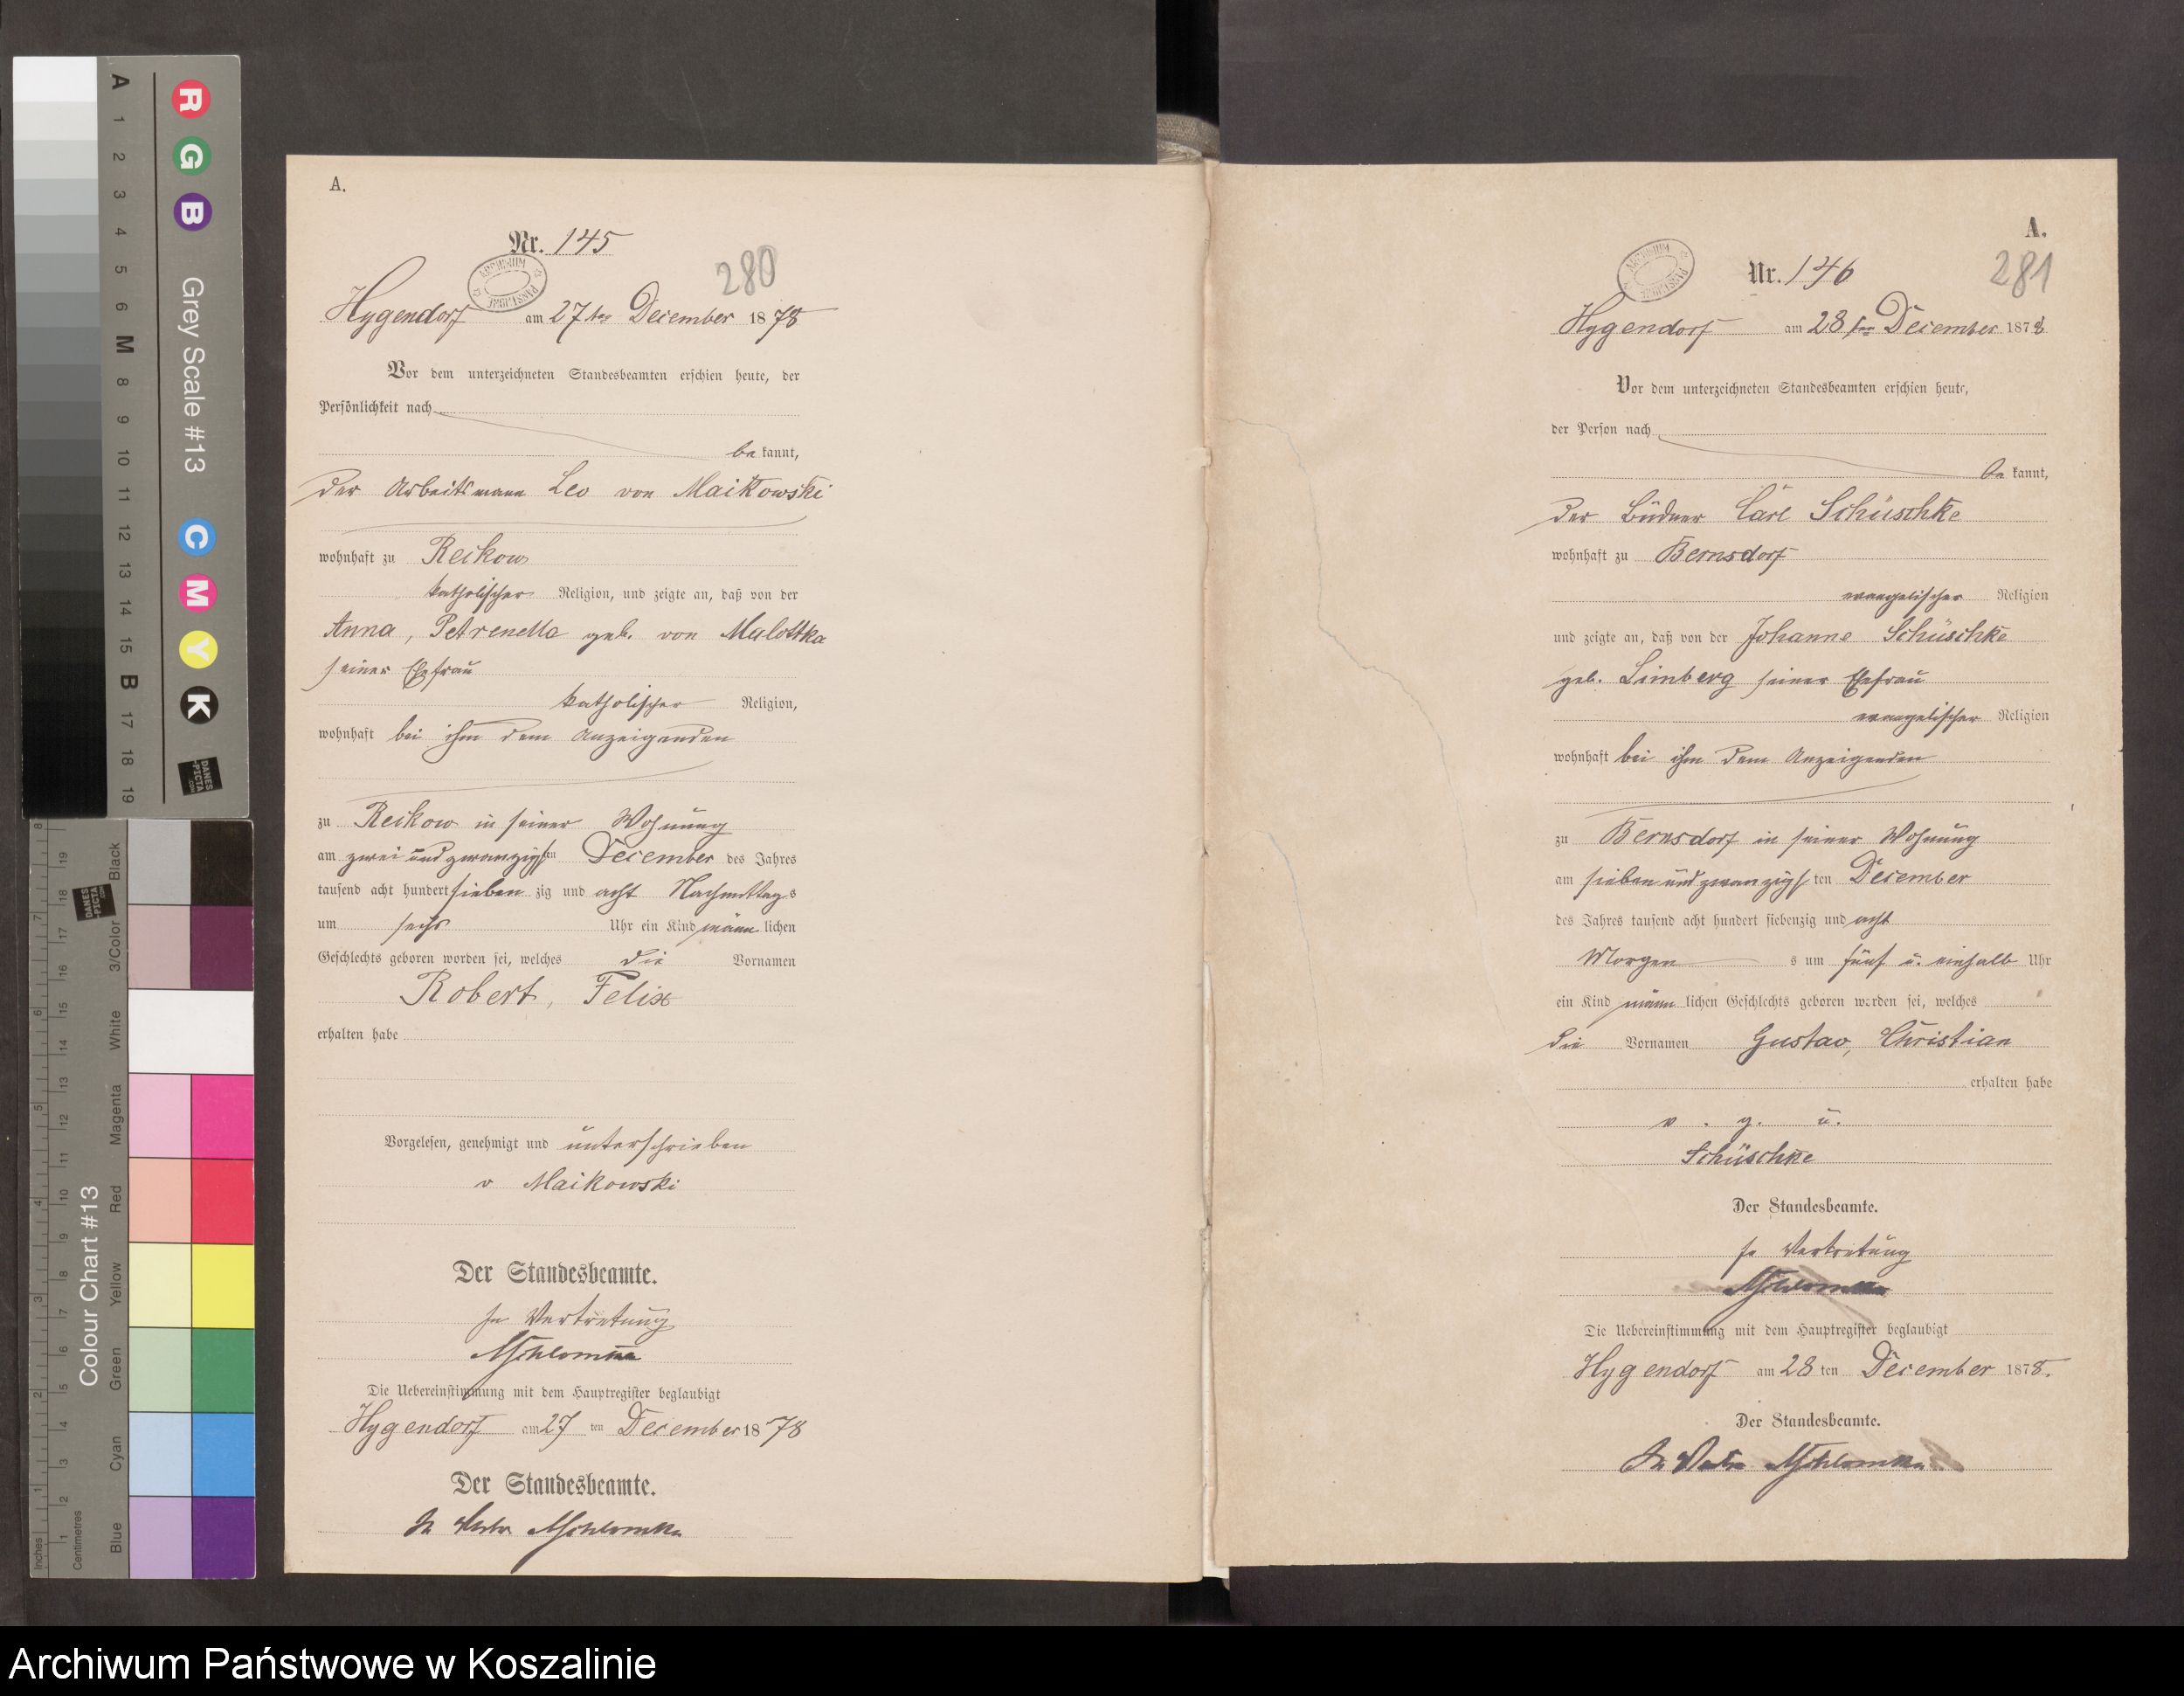 A.
Nr. 145
280
ARCHIWUM PAŃSTWOWE
Hygendorf am 27ten December 1878
Vor dem unterzeichneten Standesbeamten erschien heute, der
Persönlichkeit nach
bekannt,
der Arbeitsmann Leo von Maikowski
wohnhaft zu Reckow
katholischer Religion, und zeigte an, daß von der
Anna, Petrenella geb. von Malottka
seiner Ehefrau
katholischer Religion,
wohnhaft bei ihm dem Anzeigenden
zu Reckow in seiner Wohnung
am zwei und zwanzigsten December des Jahres
tausend acht hundert siebenzig und acht Nachmittags
um sechs Uhr ein Kind männlichen
Geschlechts geboren worden sei, welches die Vornamen
Robert, Felix
erhalten habe
Vorgelesen, genehmigt und unterschrieben
v Maikowski
Der Standesbeamte.
In Vertretung
Die Uebereinstimmung mit dem Hauptregister beglaubigt
Hygendorf am 27 ten December 1878
Der Standesbeamte.
In Vertr
A.
Nr. 146
281
ARCHIWUM PAŃSTWOWE
Hygendorf am 28ten December 1878
Vor dem unterzeichneten Standesbeamten erschien heute,
der Person nach
bekannt,
der Büdner Carl Schüschke
wohnhaft zu Bernsdorf
evangelischer Religion
und zeigte an, daß von der Johanne Schüschke
geb. Limberg seiner Ehefrau
evangelischer Religion
wohnhaft bei ihm dem Anzeigenden
zu Bernsdorf in seiner Wohnung
am sieben und zwanzigsten December
des Jahres tausend acht hundert siebenzig und acht
Morgens um fünf u. einhalb Uhr
ein Kind männlichen Geschlechts geboren worden sei, welches
die Vornamen Gustav, Christian
erhalten habe
v. g. u.
Schüschke
Der Standesbeamte.
In Vertretung
Die Uebereinstimmung mit dem Hauptregister beglaubigt
Hygendorf am 28 ten December 1878.
Der Standesbeamte.
In Vertr
A 1 2 3 4 5 6 M 8 9 10 11 12 13 14 15 B 17 18 19
R G B
Grey Scale #13
C M Y K
DANES PICTA
Colour Chart #13
Black
3/Color
White
Magenta
Red
Yellow
Green
Cyan
Blue
Inches
Centimetres
Archiwum Państwowe w Koszalinie